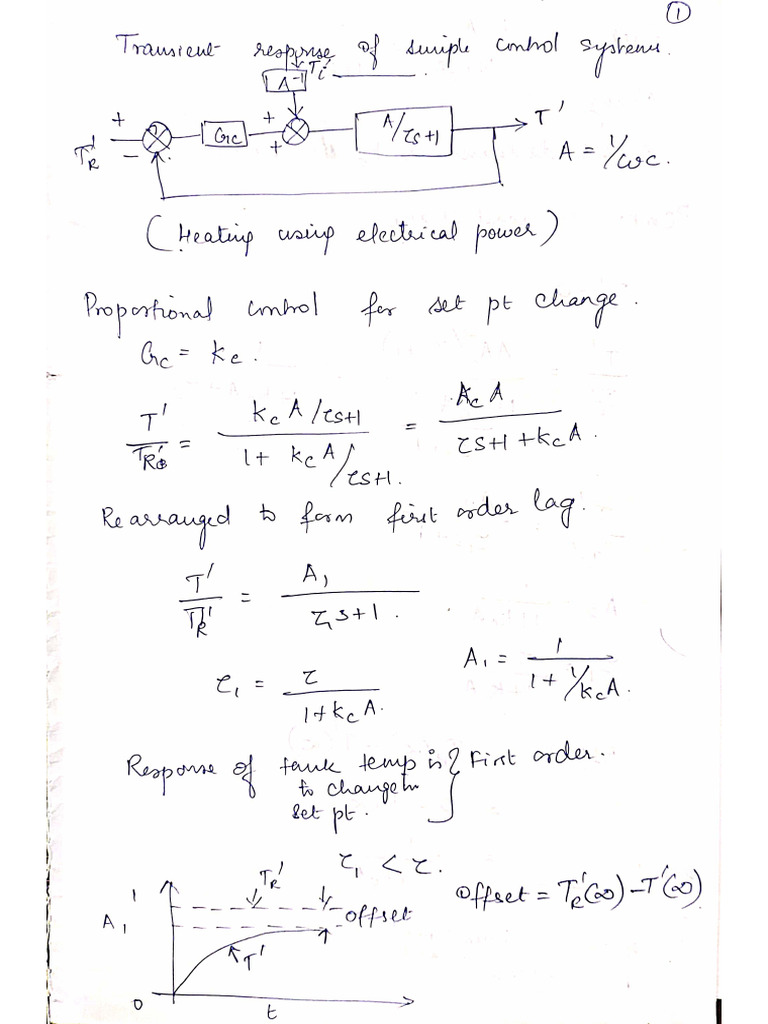 1
Transient response of simple control systems.
A⁻¹ Ti'
+ Gc + A/τs+1 T'
TR' − + A = 1/wc.
(Heating using electrical power)
Proportional control for set pt change.
Gc = Kc.
T'/TR' = (Kc A/τs+1)/(1+ Kc A/τs+1.) = Kc A/(τs+1+KcA.)
Rearranged to form first order lag.
T'/TR' = A₁/(τ₁s+1.)
τ₁ = τ/(1+KcA.) A₁ = 1/(1+1/KcA.)
Response of tank temp is } First order.
to change in
set pt.
τ₁ < τ.
TR' Offset = TR'(∞)−T'(∞)
1
A₁ offset
T'
0 t